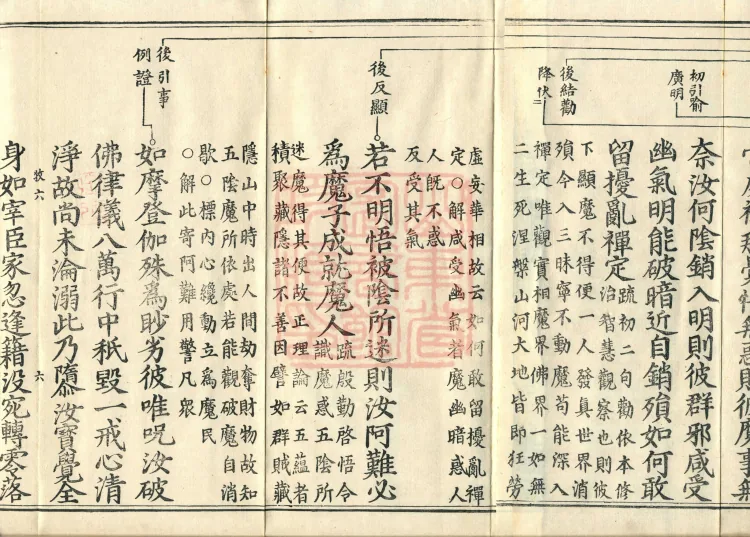 初引喻
廣明
奈汝何陰銷入明則彼群邪咸受
幽氣明能破暗近自銷殞如何敢
留擾亂禪定
疏初二句勸依本修
治智慧觀察也則彼
下顯魔不得便一人發真世界消
殞今入三昧寧不動魔苟能深入
禪定唯觀實相魔界佛界一如無
二生死涅槃山河大地皆即狂勞
後結勸
降伏二
虛妄華相故云如何敢留擾亂禪
定○解咸受幽氣若魔幽暗惑人
人既不惑
反受其氣
後反顯
若不明悟被陰所迷則汝阿難必
為魔子成就魔人
疏殷勤啓悟令
識魔惑五陰所
迷魔得其便故正理論云五蘊者
積聚藏隱諸不善因譬如群賊藏
隱山中時出人間劫奪財物故知
五陰魔所依處若能觀破魔自消
歇○標內心纔動立為魔民
○解此寄阿難用警凡眾
後引事
例證
如摩登伽殊為眇劣彼唯呪汝破
佛律儀八萬行中秖毀一戒心清
淨故尚未淪溺此乃隳汝寶覺全
身如宰臣家忽逢籍没宛轉零落
六